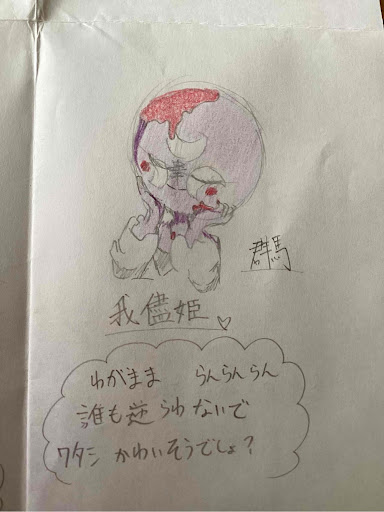 群馬
我儘姫♡
わがまま らんらんらん
誰も逆らわないで
ワタシ かわいそうでしょ?